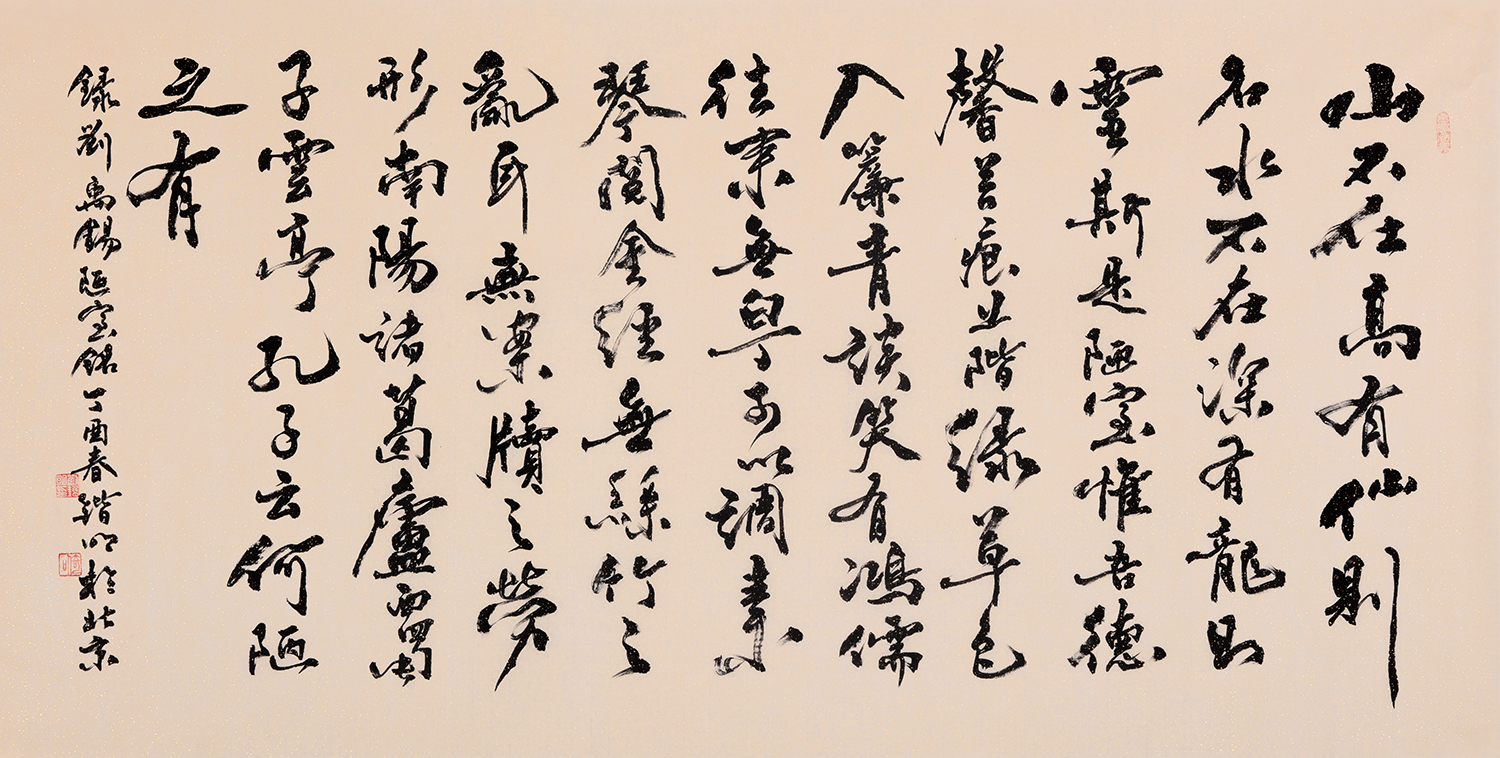 山不在高有仙則
名水不在深有龍則
靈斯是陋室惟吾德
馨苔痕上階緑草色
入簾青談笑有鴻儒
往来無白丁可以調素
琴閲金經無絲竹之
亂耳無案牘之勞
形南陽諸葛廬西蜀
子雲亭孔子云何陋
之有
録劉禹錫陋室銘丁酉春鍇明於北京